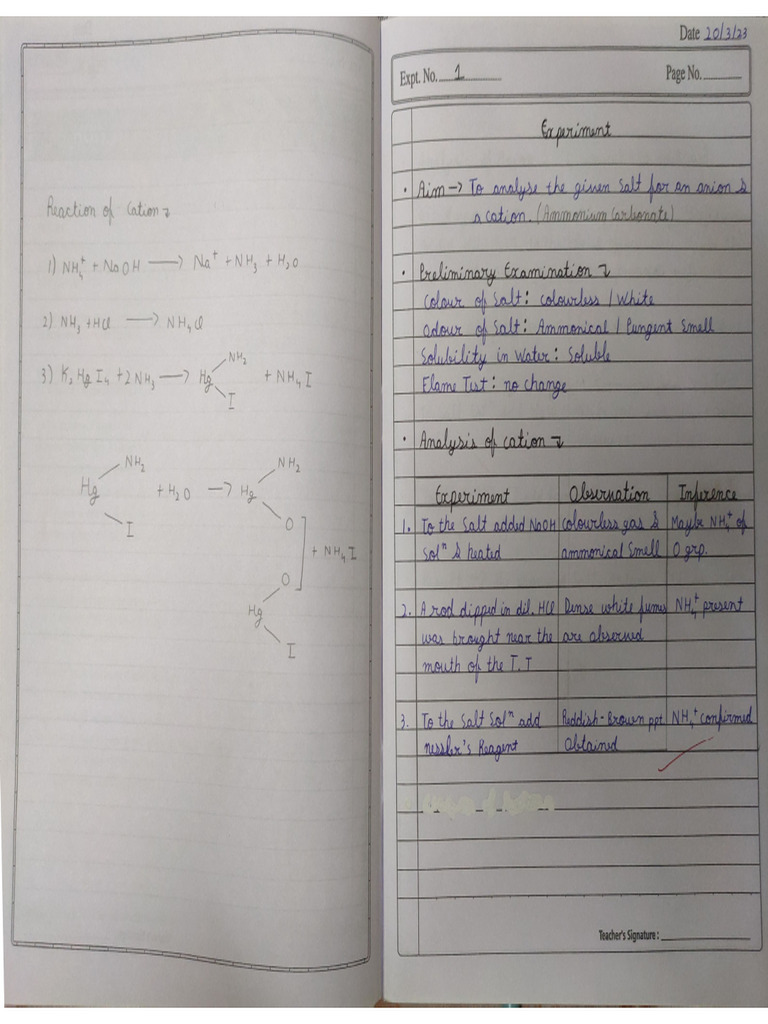 Reaction of Cation
1) NH4+ + NaOH → Na+ + NH3 + H2O
2) NH3 + HCl → NH4Cl
3) K2HgI4 + 2NH3 → Hg + NH4I
NH2
I
NH2
Hg + H2O → Hg
I
NH2
O
+ NH4I
O
Hg
I
Date 20/3/23
Expt. No. 1 Page No.
Experiment
• Aim → To analyse the given salt for an anion &
a cation. (Ammonium Carbonate)
• Preliminary Examination
Colour of Salt: Colourless / White
Odour of Salt: Ammonical / Pungent Smell
Solubility in Water: Soluble
Flame Test: no change
• Analysis of cation
Experiment Observation Inference
1. To the Salt added NaOH Colourless gas & Maybe NH4+ of
Soln & heated ammonical Smell O grp.
2. A rod dipped in dil. HCl Dense white fumes NH4+ present
was brought near the are observed
mouth of the T.T
3. To the Salt Soln add Reddish-Brown ppt NH4+ confirmed
nessler's Reagent Obtained
Teacher's Signature :